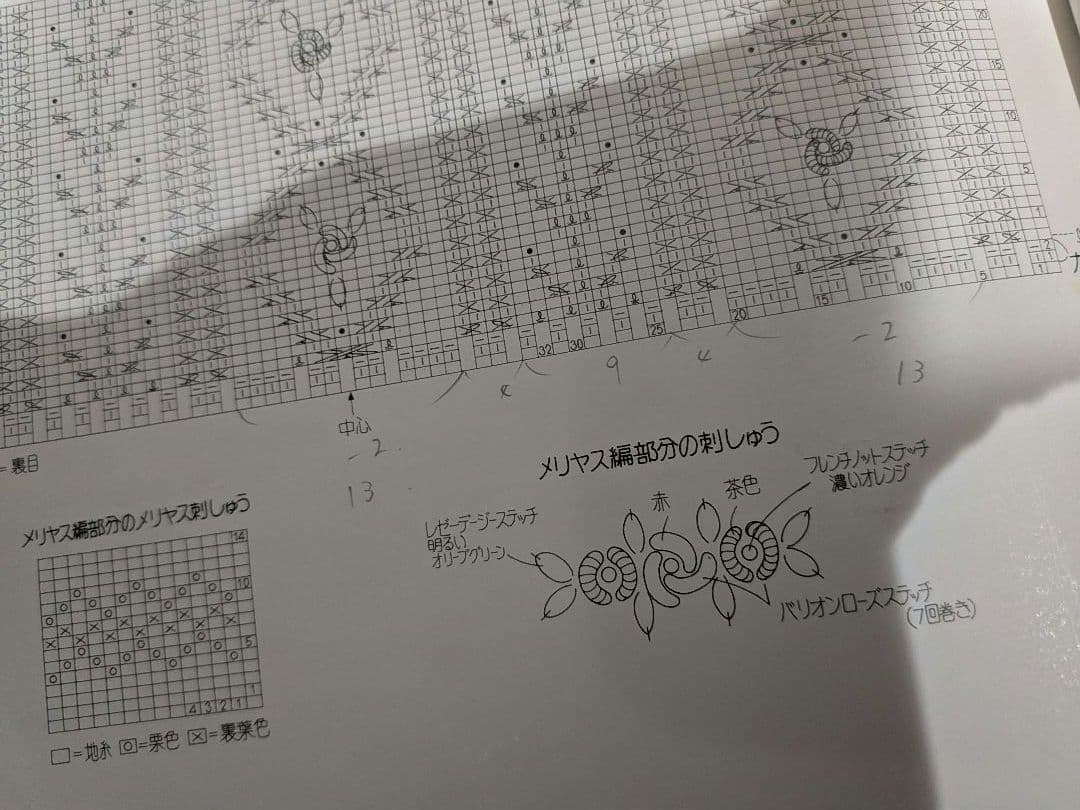 20
15
10
5
2
1
5
10
15
20
25
30
32
-2
13
4
9
4
中心
-2.
13
=裏目
メリヤス編部分のメリヤス刺しゅう
14
10
5
1
4 3 2 1
□=地糸 ◯=栗色 ×=裏葉色
メリヤス編部分の刺しゅう
フレンチノットステッチ
濃いオレンジ
茶色
赤
レゼーデージーステッチ
明るい
オリーブグリーン
バリオンローズステッチ
(7回巻き)